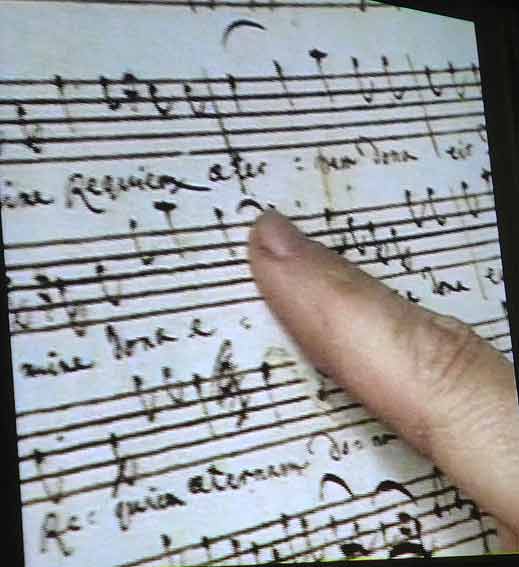 ine Requiem aeter = nam dona eis
mine dona e =
Re= quiem aeternam do= na